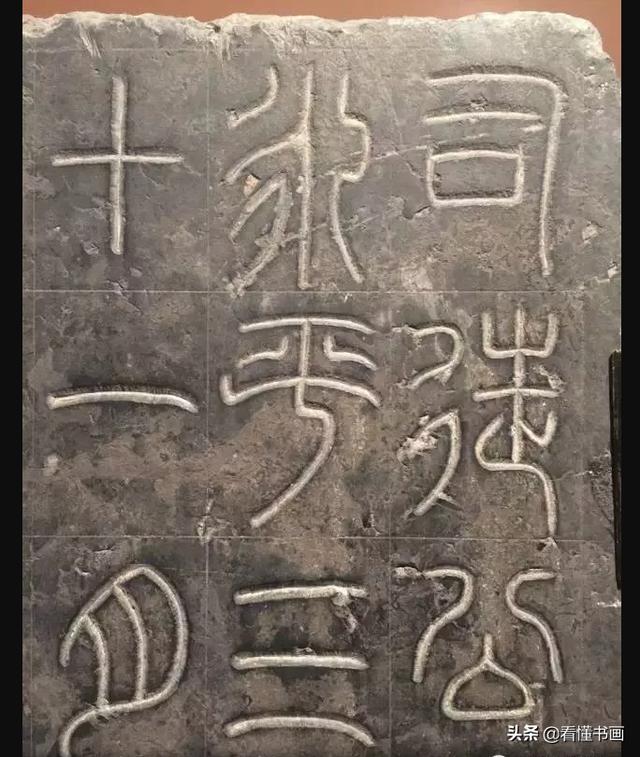 司徒公
永平三
十一月
头条 @看懂书画